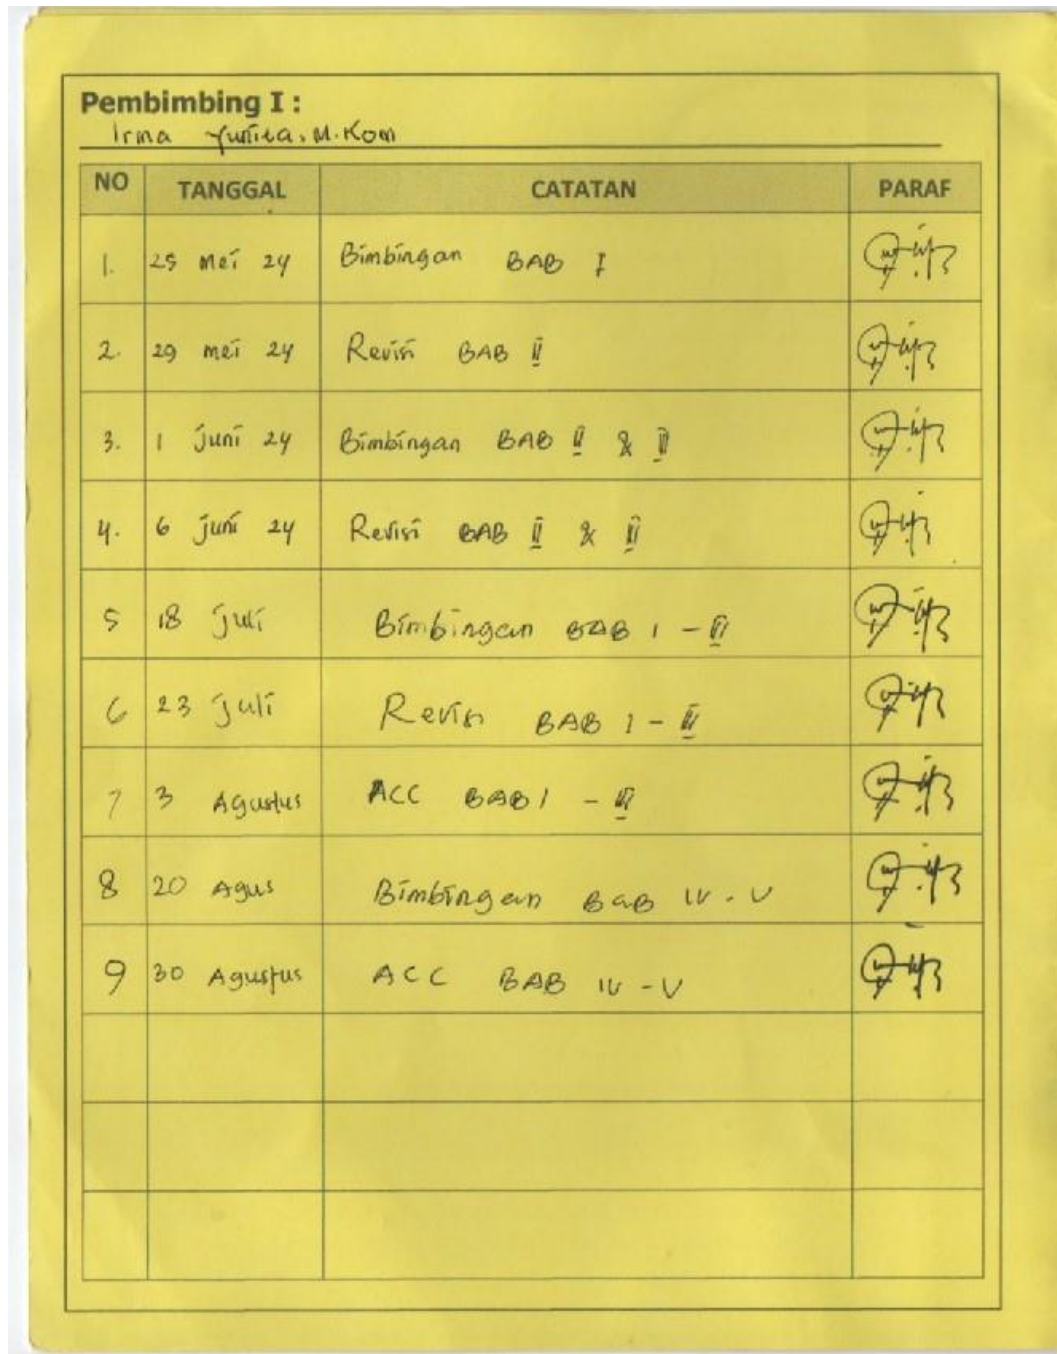 Pembimbing I :
Irma Yunita. M. Kom
NO TANGGAL CATATAN PARAF
1. 25 mei 24 Bimbingan BAB I
2. 29 mei 24 Revisi BAB II
3. 1 juni 24 Bimbingan BAB II & III
4. 6 juni 24 Revisi BAB II & III
5 18 juli Bimbingan BAB I - III
6 23 juli Revisi BAB I - III
7 3 Agustus ACC BAB I - III
8 20 Agus Bimbingan BAB IV - V
9 30 Agustus ACC BAB IV - V